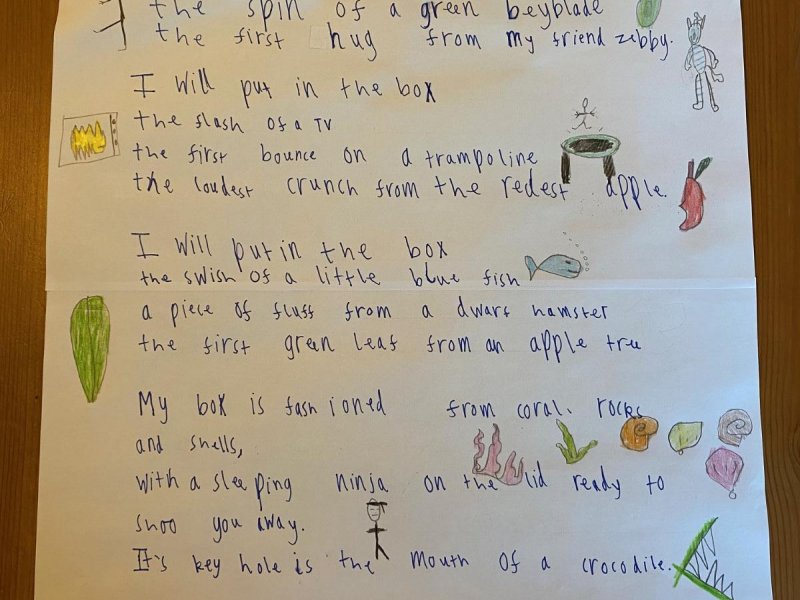 the spin of a green beyblade
the first hug from my friend zebby.
I will put in the box
the flash of a TV
the first bounce on a trampoline
the loudest crunch from the redest apple.
I will put in the box
the swish of a little blue fish
a piece of fluff from a dwarf hamster
the first green leaf from an apple tree
My box is fashioned from coral, rocks
and shells,
with a sleeping ninja on the lid ready to
shoo you away.
It's key hole is the mouth of a crocodile.